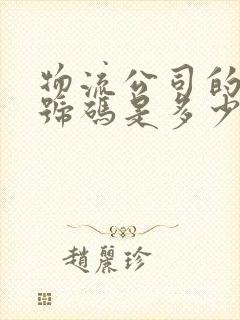 物流公司的
號碼是多少
趙麗珍